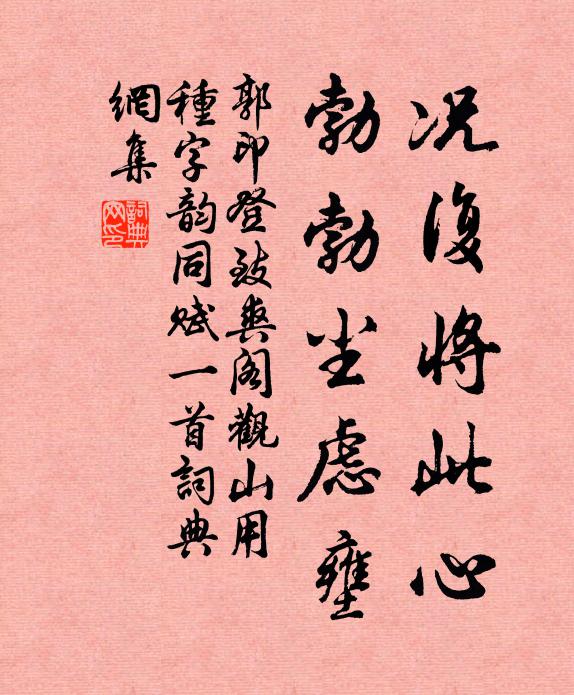 况復將此心
勃勃尘慮壅
郭印登致爽阁觀山用
種字韵同赋一首詞典
網集
詞典
网印